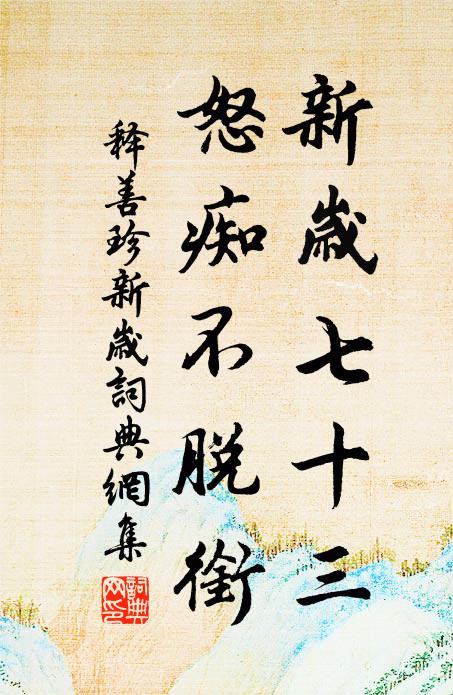 新歲七十三
怒痴不脱銜
释善珍新歲詞典網集
詞典網印